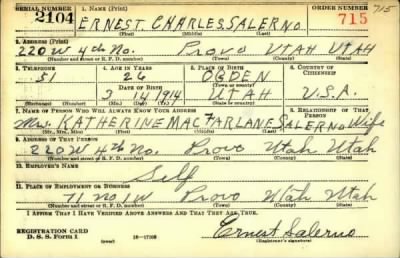 SERIAL NUMBER 1. NAME (Print) ORDER NUMBER 715
2104 ERNEST CHARLES SALERNO 715
(First) (Middle) (Last)
2. ADDRESS (Print)
220 W 4th No. Provo UTAH UTAH
(Number and street or R. F. D. number) (Town) (County) (State)
3. TELEPHONE 4. AGE IN YEARS 5. PLACE OF BIRTH 6. COUNTRY OF CITIZENSHIP
51 26 OGDEN
DATE OF BIRTH (Town or county)
3 14 1914 UTAH U.S.A.
(Exchange) (Number) (Mo.) (Day) (Yr.) (State or country)
7. NAME OF PERSON WHO WILL ALWAYS KNOW YOUR ADDRESS 8. RELATIONSHIP OF THAT PERSON
Mrs. KATHERINE MACFARLANE SALERNO Wife
(Mr., Mrs., Miss) (First) (Middle) (Last)
9. ADDRESS OF THAT PERSON
220 W 4th No. Provo Utah Utah
(Number and street or R. F. D. number) (Town) (County) (State)
10. EMPLOYER'S NAME
Self
11. PLACE OF EMPLOYMENT OR BUSINESS
71 no 1 W Provo Utah Utah
(Number and street or R. F. D. number) (Town) (County) (State)
I AFFIRM THAT I HAVE VERIFIED ABOVE ANSWERS AND THAT THEY ARE TRUE.
REGISTRATION CARD
D. S. S. Form 1 16-17105 Ernest Salerno
(Registrant's signature)